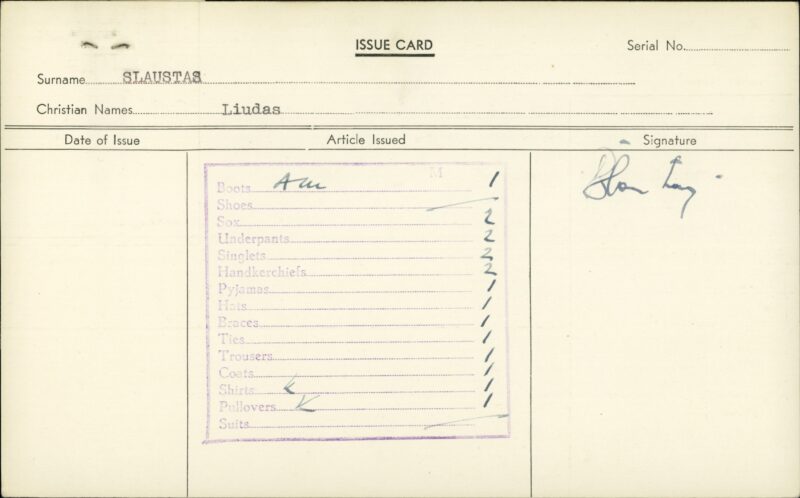 ISSUE CARD
Serial No.
Surname SLAUSTAS
Christian Names Liudas
Date of Issue Article Issued Signature
M
Boots 1
Shoes
Sox 2
Underpants 2
Singlets 2
Handkerchiefs 2
Pyjamas 1
Hats 1
Braces 1
Ties 1
Trousers 1
Coats 1
Shirts 1
Pullovers 1
Suits